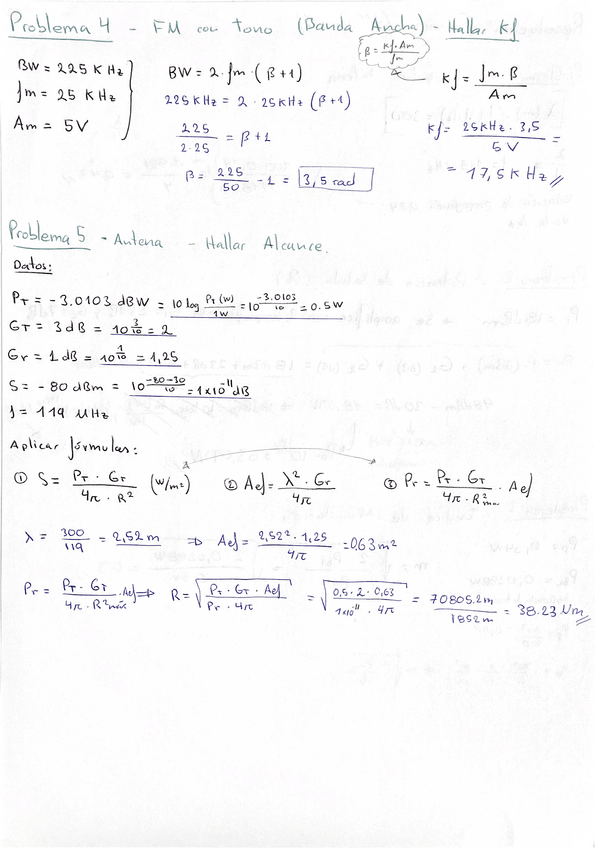 Problema 4 - FM con tono (Banda Ancha) - Hallar Kf
β = Kf·Am / fm
BW = 225 KHz
fm = 25 KHz
Am = 5V
BW = 2·fm·(β+1)
225KHz = 2·25KHz (β+1)
225 / 2·25 = β+1
β = 225/50 - 1 = 3,5 rad
Kf = fm·β / Am
Kf = 25KHz·3,5 / 5V =
= 17,5 KHz
Problema 5 - Antena - Hallar Alcance.
Datos:
PT = -3.0103 dBW = 10 log PT(W)/1W = 10^(-3.0103/10) = 0.5W
GT = 3dB = 10^(3/10) = 2
Gr = 1dB = 10^(1/10) = 1,25
S = -80 dBm = 10^((-80-30)/10) = 1x10^-11 dB
f = 119 MHz
Aplicar fórmulas:
① S = PT·GT / 4π·R² (W/m²) ② Aef = λ²·Gr / 4π ③ Pr = PT·GT / 4π·R²máx · Aef
λ = 300/119 = 2,52m ⇒ Aef = 2,52²·1,25 / 4π = 0,63m²
Pr = PT·GT / 4π·R²máx ·Aef ⇒ R = √(PT·GT·Aef / Pr·4π) = √(0,5·2·0,63 / 1x10^-11·4π) = 70805.2m / 1852m = 38.23 Nm